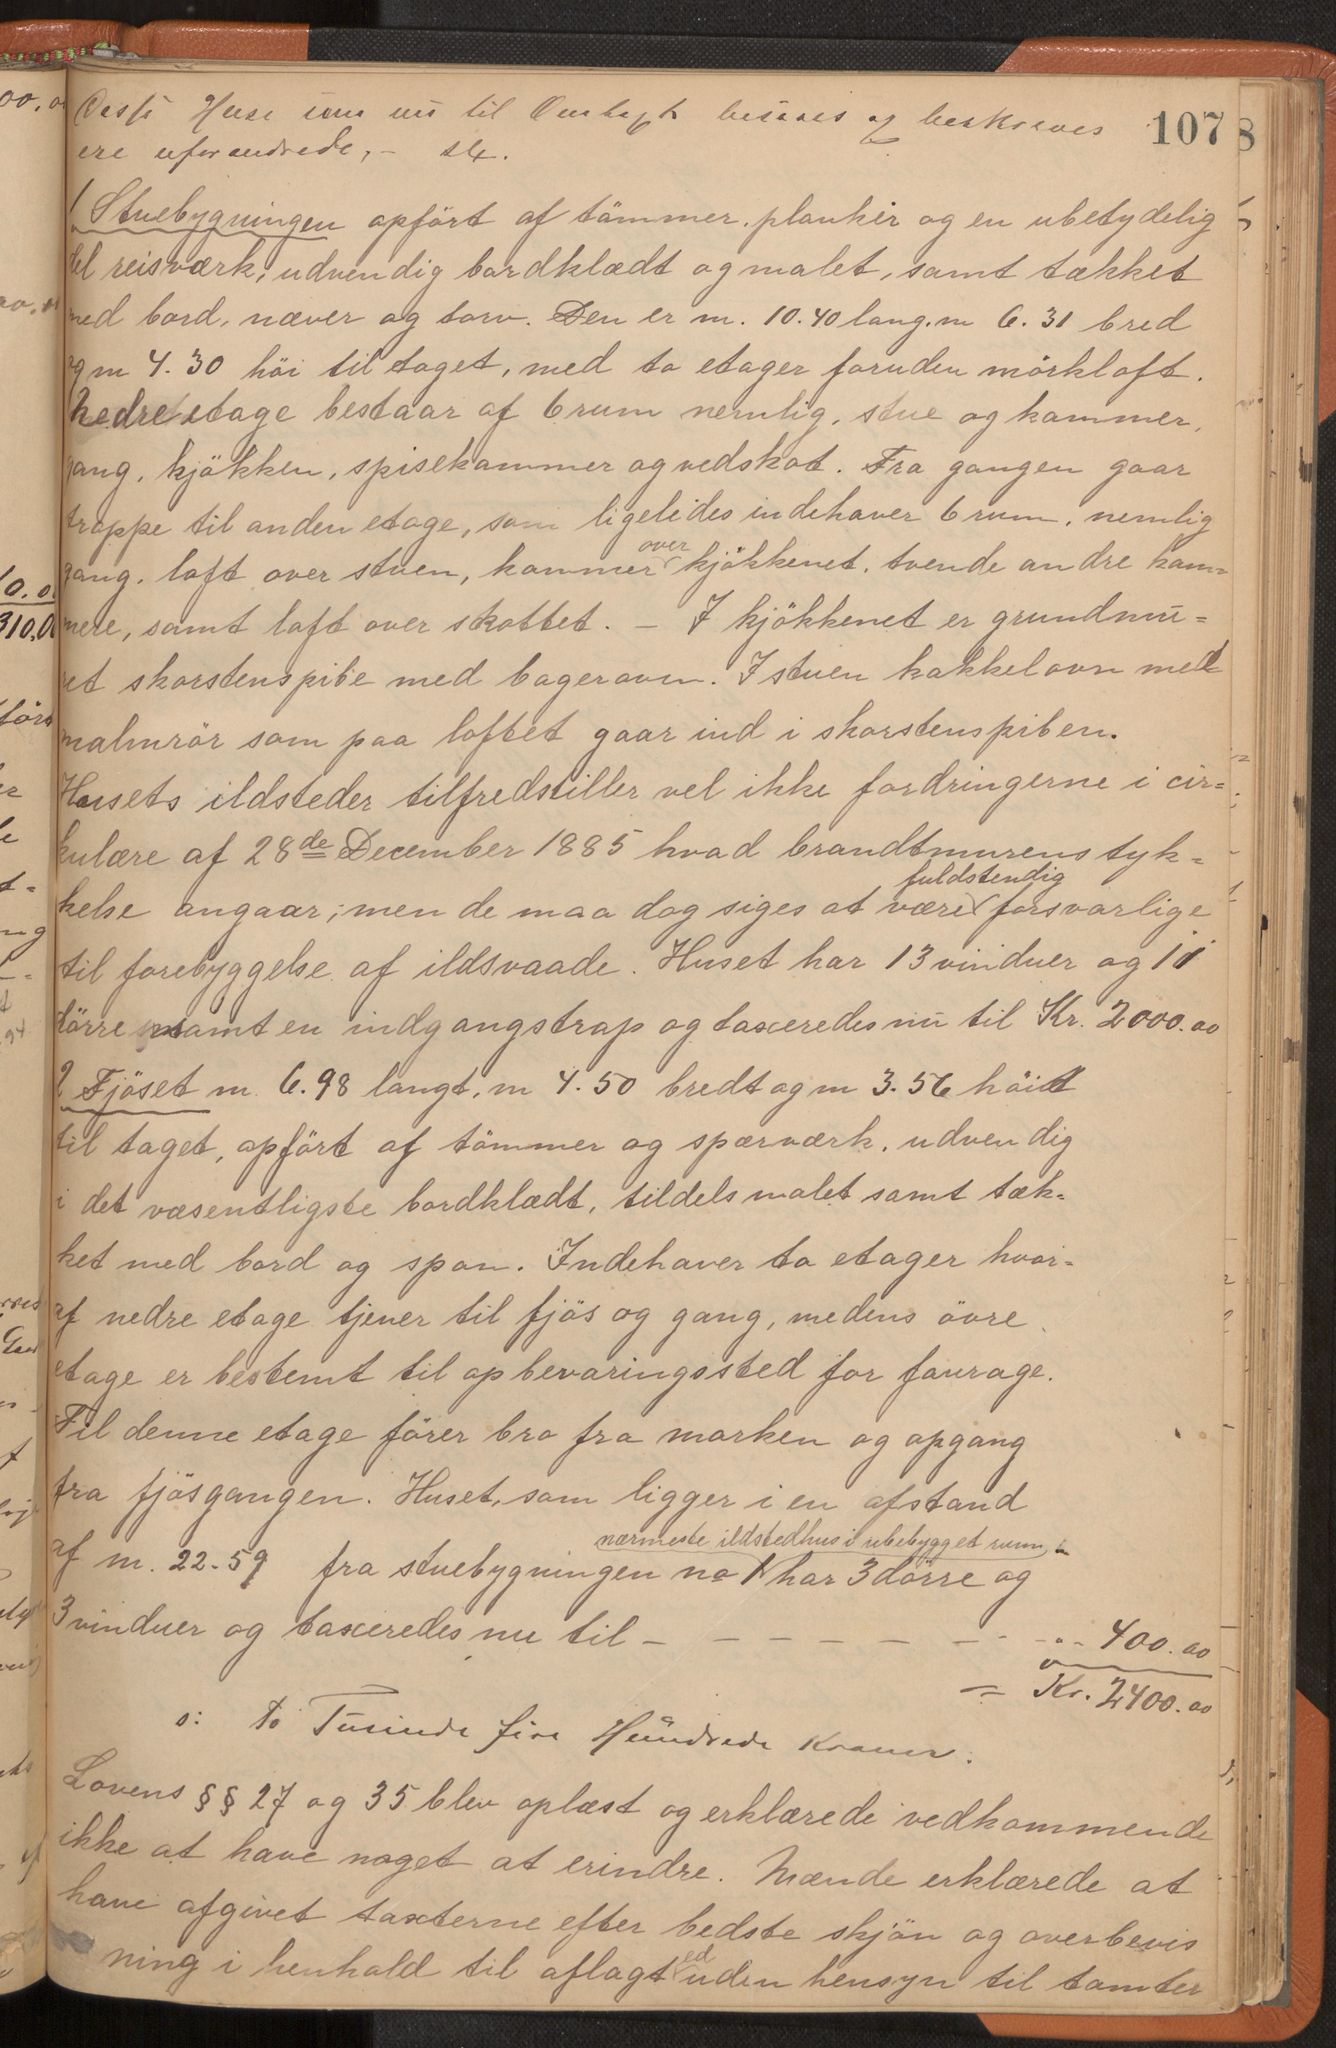 Disse Huse som nu til Omtaxt besaaes og beskreves
107
ere uforandrede, -
1 Stuebygningen opført af tömmer, planker og en ubetydelig
del reisværk, udvendig bordklædt og malet, samt tækket
med bord, næver og torv. Den er m. 10.40 lang, m 6.31 bred
og m 4.30 höi til taget, med to etager foruden mörkloft.
Nedre etage bestaar af 6 rum nemlig, stue og kammer,
gang, kjökken, spisekammer og vedskot. Fra gangen gaar
trappe til anden etage, som ligeledes indehaver 6 rum, nemlig
gang, loft over stuen, kammer over kjökkenet, tvende andre kam-
mere, samt loft over skottet. - I kjökkenet er grundmu=
ret skorstenspibe med bagerovn. I stuen kakkelovn med
malmrör som paa loftet gaar ind i skorstenspiben.
Husets ildsteder tilfredstiller vel ikke fordringerne i cir=
kulære af 28de December 1885 hvad brandtmurens tyk=
kelse angaar; men de maa dog siges at være fuldstendig forsvarlige
til forebyggelse af ildsvaade. Huset har 13 vinduer og 11
dörre samt en indgangstrap og taxeredes nu til Kr. 2000.00
2 Fjöset m 6.98 langt, m 4.50 bredt og m 3.56 höit
til taget, opfört af tömmer og spærværk, udvendig
i det væsentligste bordklædt, tildels malet samt tæk=
ket med bord og spon. Indehaver to etager hvor=
af nedre etage tjener til fjös og gang, medens övre
etage er bestemt til opbevaringssted for fourage.
Til denne etage förer bro fra marken og opgang
fra fjösgangen. Huset, som ligger i en afstand
af m. 22.59 fra stuebygningen no 1 nærmeste ildstedhus i ubebygget rum, har 3 dörre og
3 vinduer og taxeredes nu til - - - - - - - - 400.00
= Kr. 2400.00
o: to Tusinde fire Hundrede Kroner.
Lovens §§ 27 og 35 blev oplæst og erklærede vedkommende
ikke at have noget at erindre. Mænde erklærede at
have afgivet taxterne efter bedste skjön og overbevis
ning i henhold til aflagt ed uden hensyn til tomter